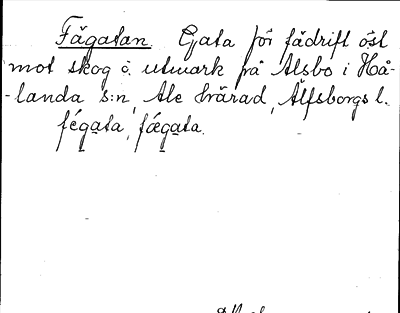 Fägatan. Gata för fädrift öst
mot skog o. utmark på Alsbo i Hå-
-landa s:n, Ale härad, Älfsborgs l.
fégata, fǽgata.